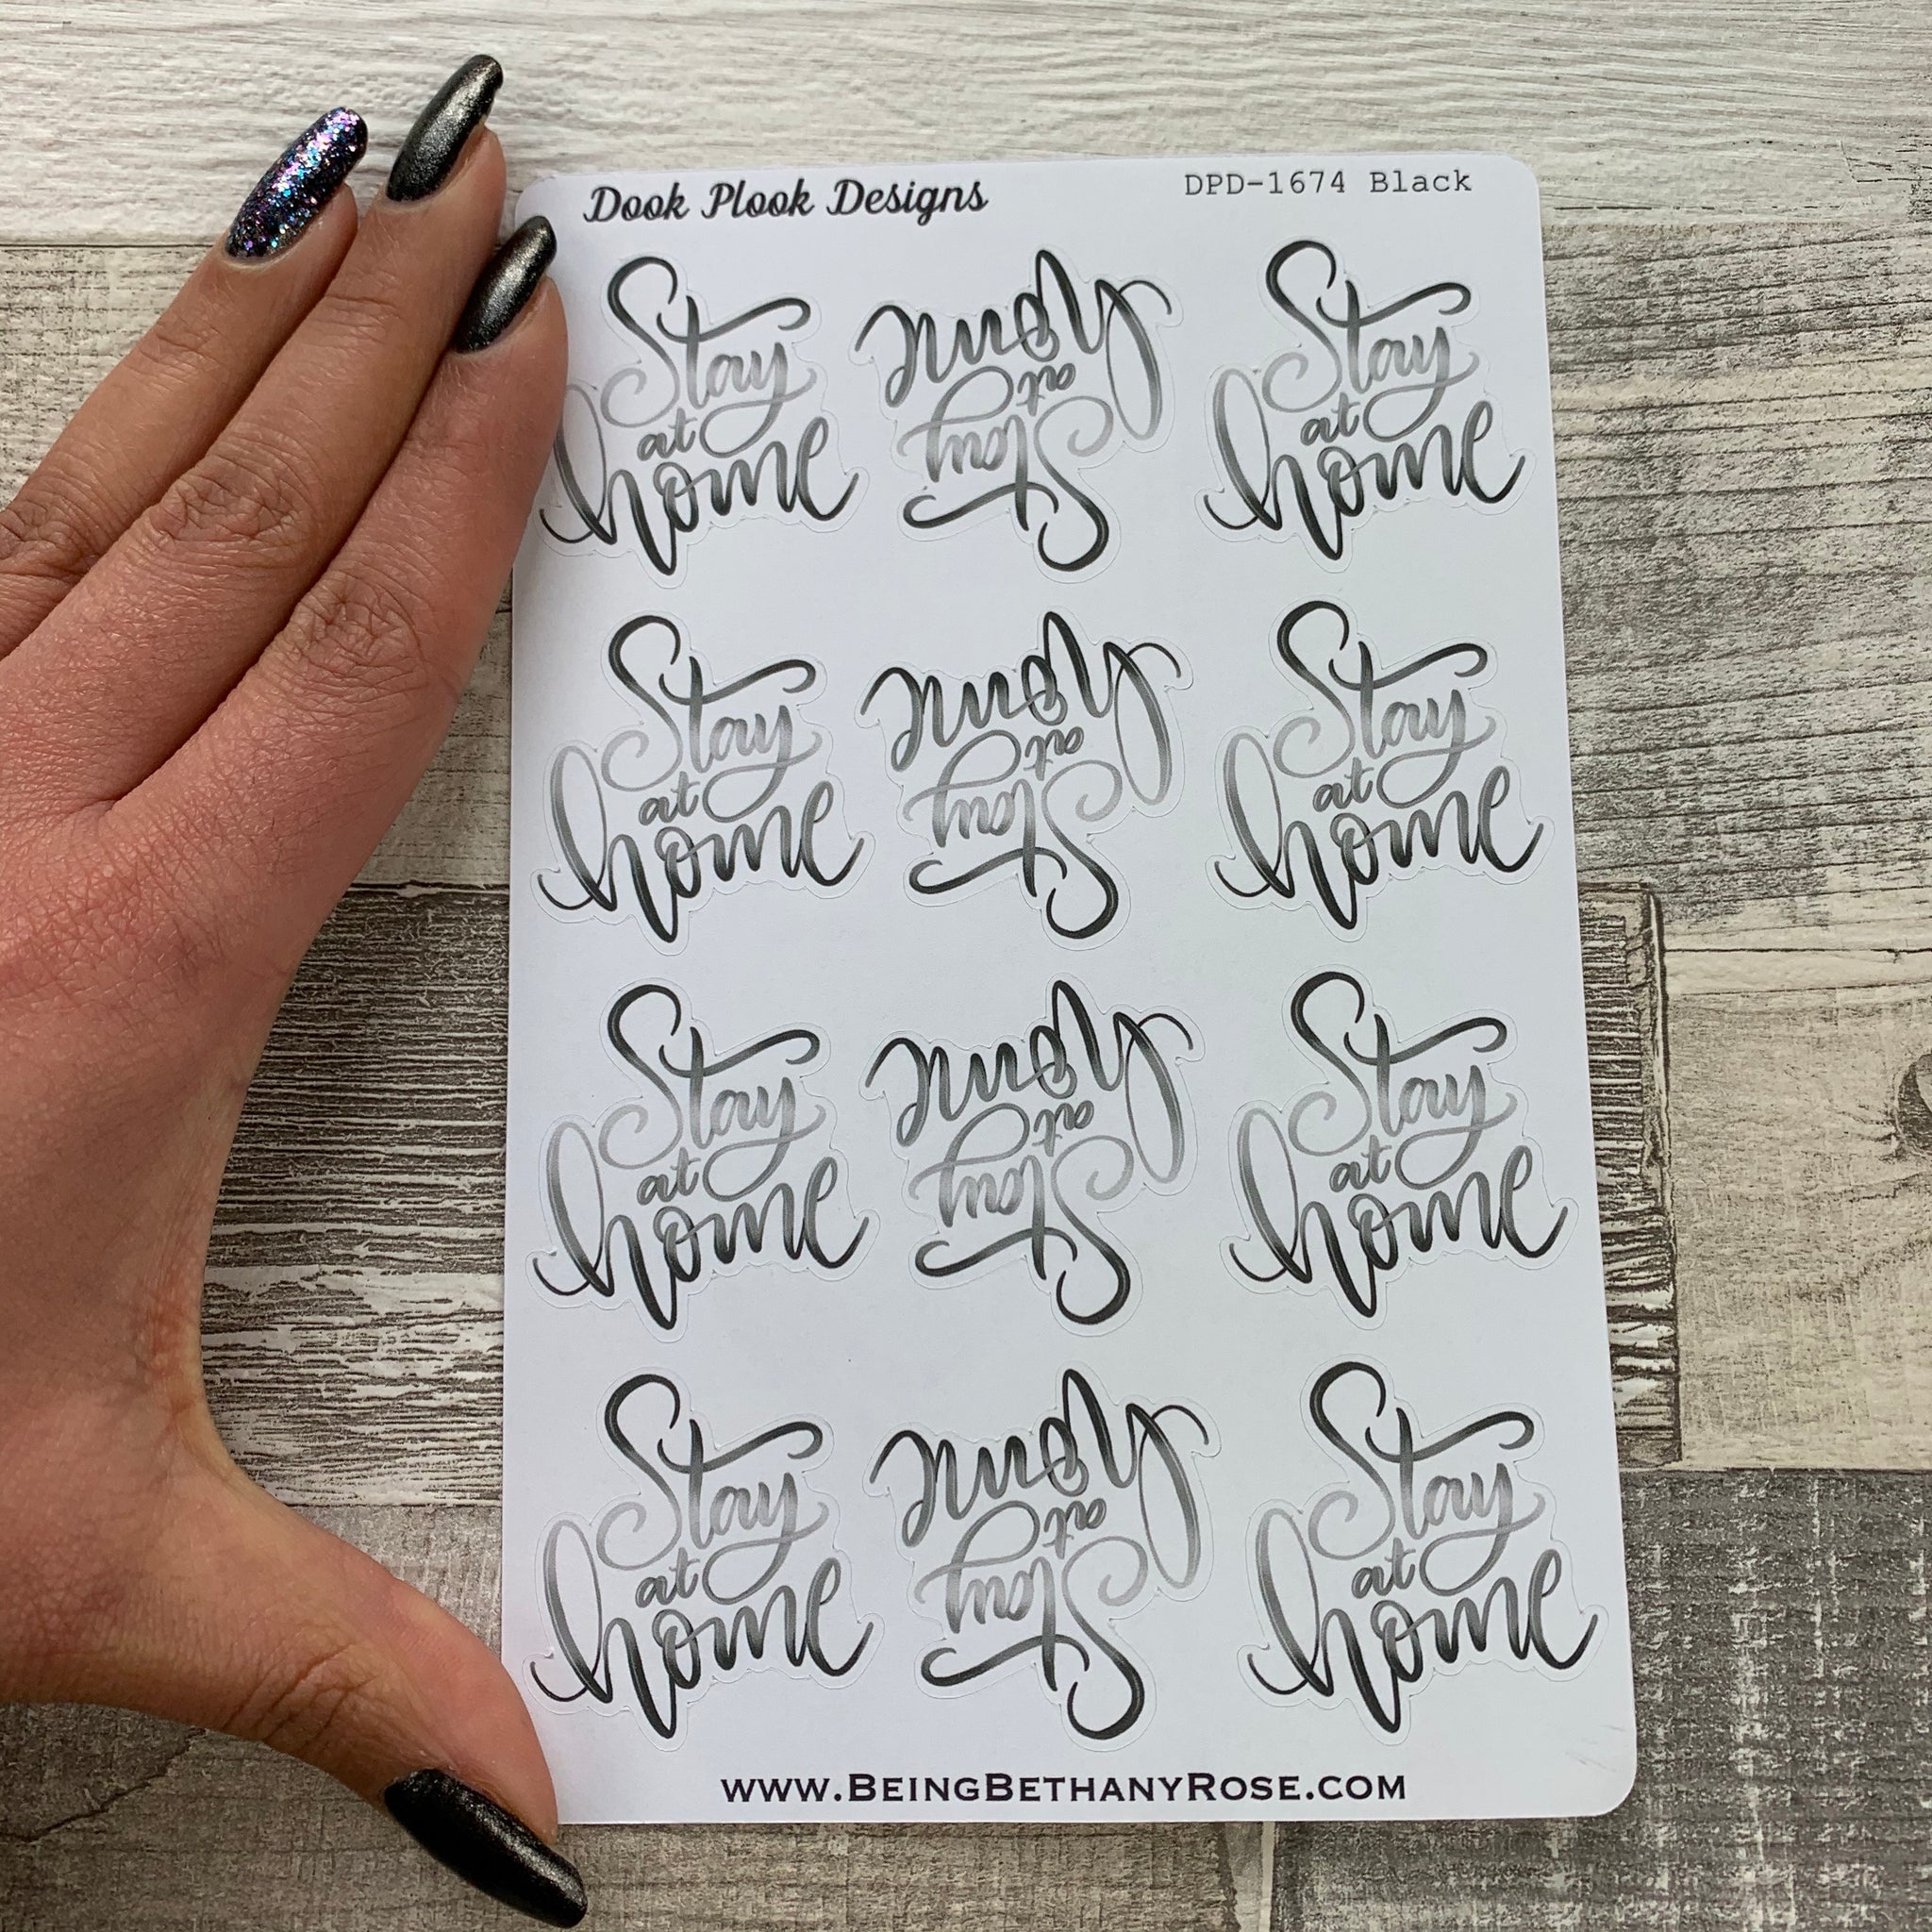 Dook Plook Designs
DPD-1674 Black
Stay
at
home
Stay
at
home
Stay
at
home
Stay
at
home
Stay
at
home
Stay
at
home
Stay
at
home
Stay
at
home
Stay
at
home
Stay
at
home
Stay
at
home
Stay
at
home
www.BeingBethanyRose.com